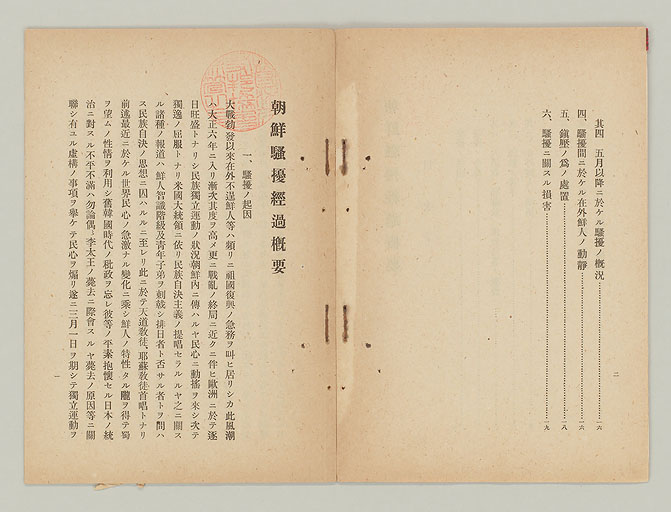 其四 五月以降ニ於ケル騷擾ノ槪況……………一六
四、騷擾間ニ於ケル在外鮮人ノ動靜……………一六
五、鎭壓ノ爲ノ處置……………一八
六、騷擾ニ關スル損害……………一九
二
朝鮮騷擾經過槪要
一、騷擾ノ起因
大戰勃發以來在外不逞鮮人等ハ頻リニ祖國復興ノ急務ヲ叫ヒ居リシカ此風潮
ハ大正六年ニ入リ漸次其度ヲ高メ更ニ戰亂ノ終局ニ近クニ伴ヒ歐洲ニ於テ逐
日旺盛トナリシ民族獨立運動ノ狀況朝鮮內ニ傳ハルヤ民心ニ動搖ヲ來シ次テ
獨逸ノ屈服トナリ米國大統領ニ依リ民族自決主義ノ提唱セラルルヤ之ニ關ス
ル諸種ノ報道ハ鮮人智識階級及靑年子弟ヲ刺戟シ排日者ト否サル者トヲ問ハ
ス民族自決ノ思想ニ因ハルルニ至レリ此ニ於テ天道敎徒、耶蘇敎徒首唱トナリ
前述最近ニ於ケル世界民心ノ急激ナル變化ニ乘シ鮮人ノ特性タル隴ヲ得テ蜀
ヲ望ムノ性情ヲ利用シ舊韓國時代ノ秕政ヲ忘レ彼等ノ平素抱懷セル日本ノ統
治ニ對スル不平不滿ハ勿論偶〻李太王ノ薨去ニ際會スルヤ薨去ノ原因等ニ關
聯シ有ユル虛構ノ事項ヲ擧ケテ民心ヲ煽リ遂ニ三月一日ヲ期シテ獨立運動ヲ
一